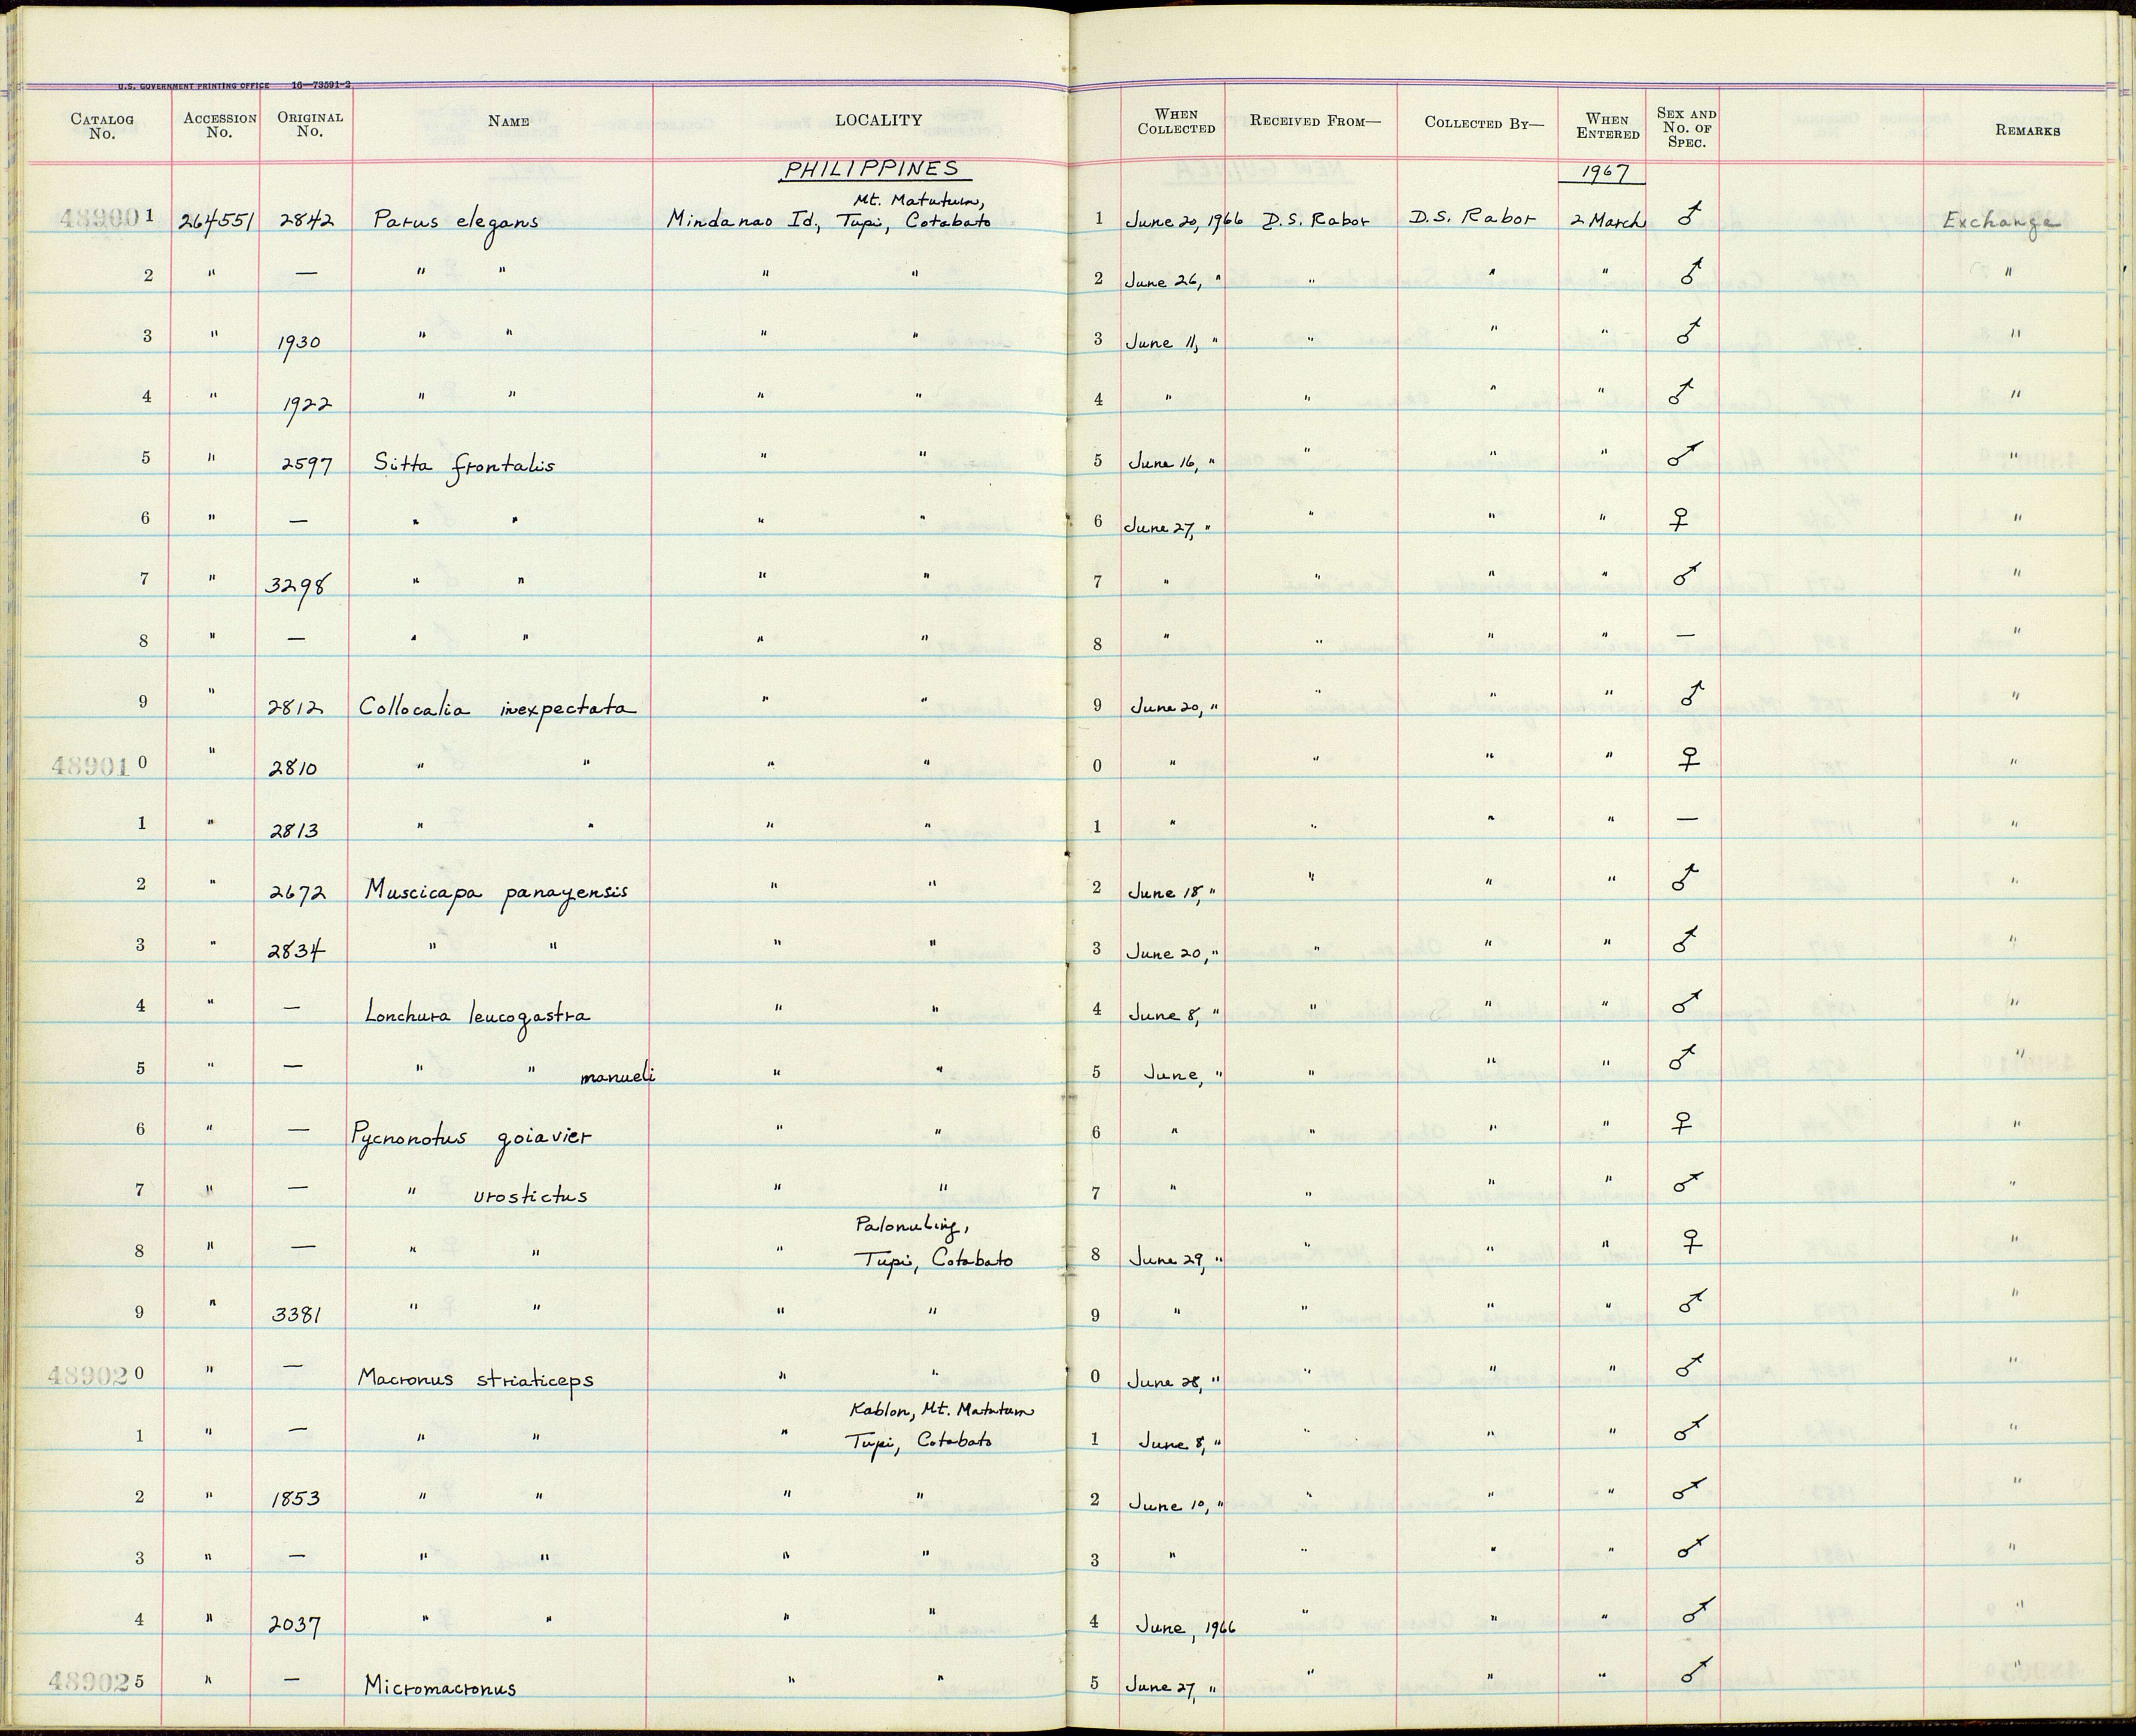 U.S. GOVERNMENT PRINTING OFFICE 16—73591-2
CATALOG No. ACCESSION No. ORIGINAL No. NAME LOCALITY WHEN COLLECTED RECEIVED FROM— COLLECTED BY— WHEN ENTERED SEX AND No. OF SPEC. REMARKS
PHILIPPINES 1967
Mt. Matutum,
489001 264551 2842 Parus elegans Mindanao Id., Tupi, Cotabato 1 June 20, 1966 D.S. Rabor D.S. Rabor 2 March ♂ Exchange
2 " — " " " " 2 June 26, " " " " ♂ "
3 " 1930 " " " " 3 June 11, " " " " ♂ "
4 " 1922 " " " " 4 " " " " ♂ "
5 " 2597 Sitta frontalis " " 5 June 16, " " " " ♂ "
6 " — " " " " 6 June 27, " " " " ♀ "
7 " 3298 " " " " 7 " " " " ♂ "
8 " — " " " " 8 " " " " — "
9 " 2812 Collocalia inexpectata " " 9 June 20, " " " " ♂ "
489010 " 2810 " " " " 0 " " " " ♀ "
1 " 2813 " " " " 1 " " " " — "
2 " 2672 Muscicapa panayensis " " 2 June 18, " " " " ♂ "
3 " 2834 " " " " 3 June 20, " " " " ♂ "
4 " — Lonchura leucogastra " " 4 June 8, " " " " ♂ "
5 " — " " manueli " " 5 June, " " " " ♂ "
6 " — Pycnonotus goiavier " " 6 " " " " ♀ "
7 " — " urostictus " " 7 " " " " ♂ "
Palonuling,
8 " — " " " Tupi, Cotabato 8 June 29, " " " " ♀ "
9 " 3381 " " " " 9 " " " " ♂ "
489020 " — Macronus striaticeps " " 0 June 28, " " " " ♂ "
Kablon, Mt. Matutum
1 " — " " " Tupi, Cotabato 1 June 8, " " " " ♂ "
2 " 1853 " " " " 2 June 10, " " " " ♂ "
3 " — " " " " 3 " " " " ♂ "
4 " 2037 " " " " 4 June, 1966 " " " ♂ "
489025 " — Micromacronus " " 5 June 27, " " " " ♂ "